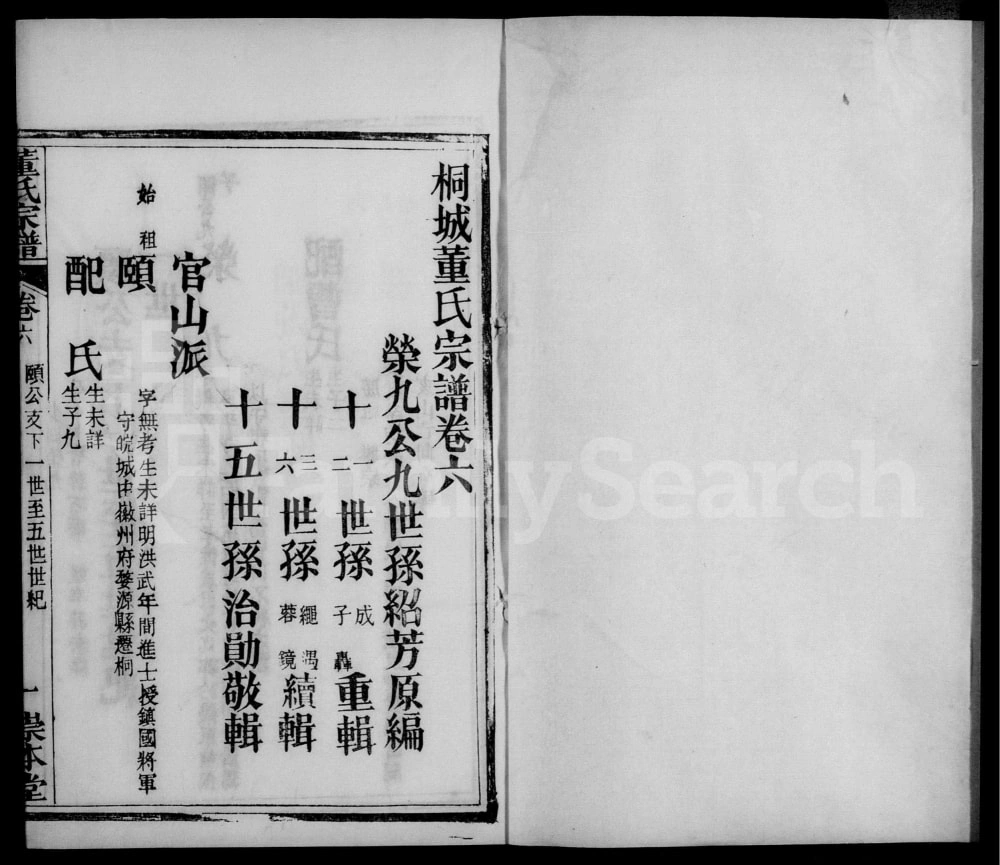 桐城董氏宗譜卷六
榮九公九世孫紹芳原編
十一二世孫成子轟重輯
十三六世孫繩蓉鏡續輯
十五世孫治勛敬輯
官山派
始祖頤
字無考生未詳明洪武年間進士授鎮國將軍
守皖城由徽州府婺源縣遷桐
配氏
生未詳
生子九
董氏宗譜
卷六
頤公支下一世至五世世紀
一
崇本堂
FamilySearch